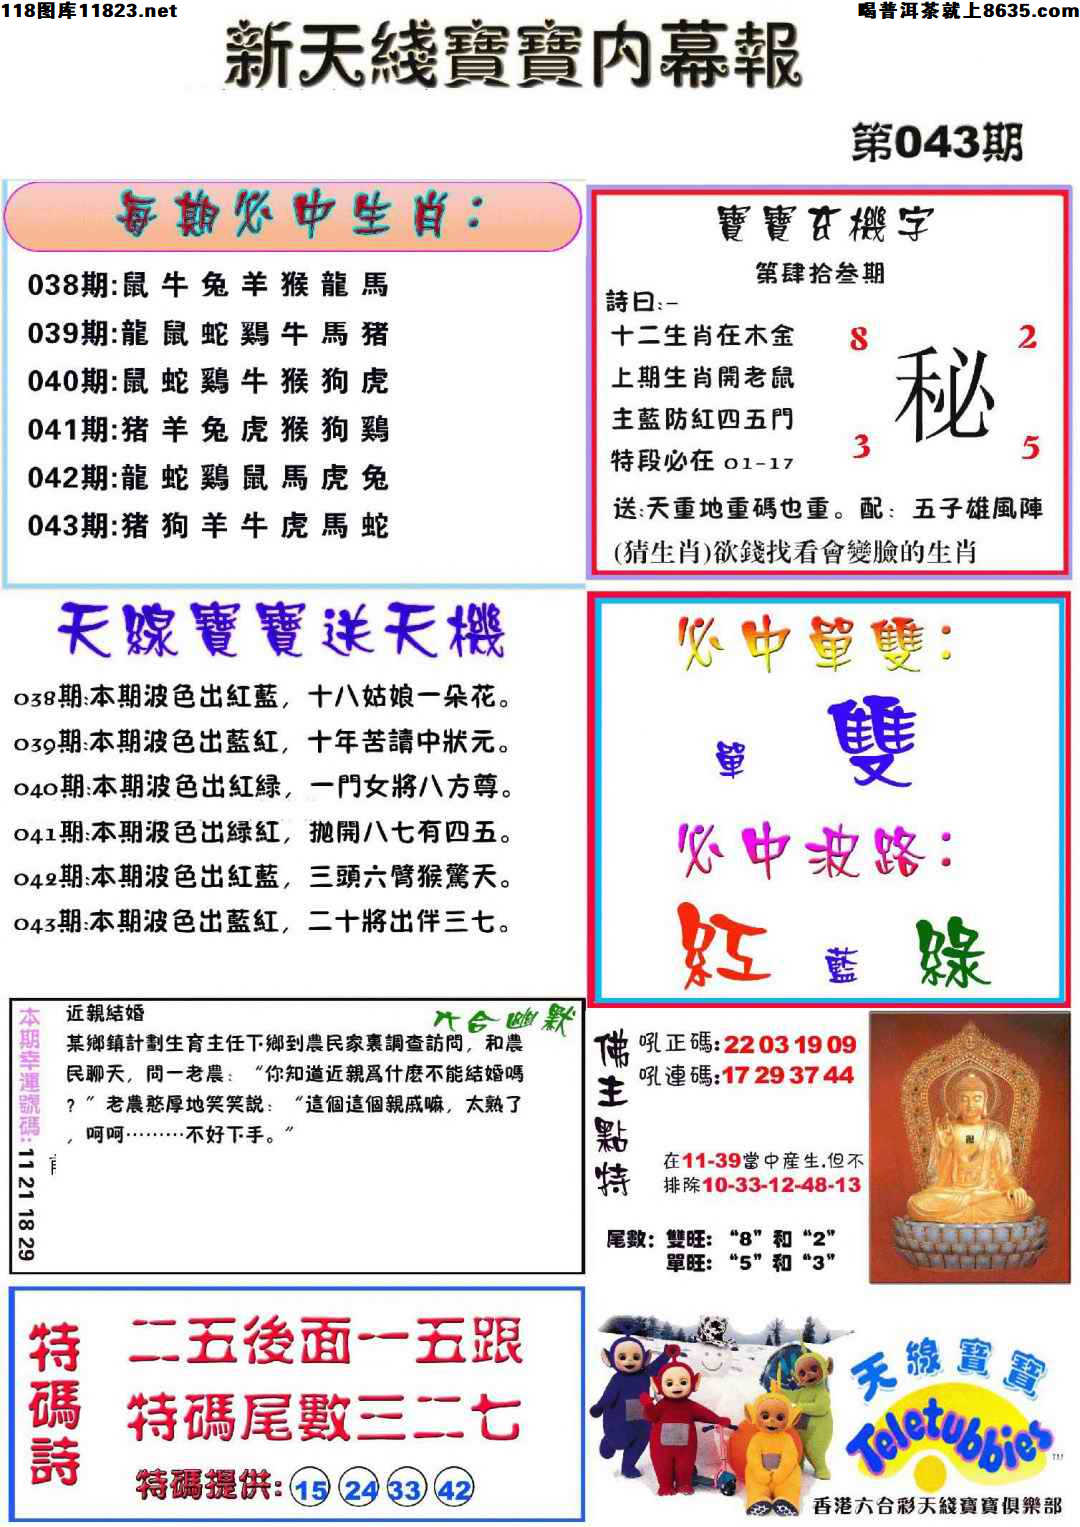 118图库11823.net
喝普洱茶就上8635.com
新天綫寶寶内幕報
第043期
每期必中生肖：
038期:鼠牛兔羊猴龍馬
039期:龍鼠蛇鷄牛馬猪
040期:鼠蛇鷄牛猴狗虎
041期:猪羊兔虎猴狗鷄
042期:龍蛇鷄鼠馬虎兔
043期:猪狗羊牛虎馬蛇
寶寶玄機字
第肆拾叁期
詩曰:-
十二生肖在木金
上期生肖開老鼠
主藍防紅四五門
特段必在 01-17
8 2
秘
3 5
送:天重地重碼也重。配：五子雄風陣
(猜生肖)欲錢找看會變臉的生肖
天線寶寶送天機
038期:本期波色出紅藍，十八姑娘一朵花。
039期:本期波色出藍紅，十年苦讀中狀元。
040期:本期波色出紅緑，一門女將八方尊。
041期:本期波色出緑紅，拋開八七有四五。
042期:本期波色出紅藍，三頭六臂猴驚天。
043期:本期波色出藍紅，二十將出伴三七。
必中單雙：
單 雙
必中波路：
紅 藍 綠
本期幸運號碼:11 21 18 29
六合幽默
近親結婚
某鄉鎮計劃生育主任下鄉到農民家裏調查訪問，和農
民聊天，問一老農：“你知道近親爲什麽不能結婚嗎
？”老農憨厚地笑笑説：“這個這個親戚嘛，太熟了
，呵呵………不好下手。”
佛主點特
吼正碼:22 03 19 09
吼連碼:17 29 37 44
在11-39當中産生.但不
排除10-33-12-48-13
尾數：雙旺：“8”和“2”
單旺：“5”和“3”
特碼詩
二五後面一五跟
特碼尾數三二七
特碼提供: 15 24 33 42
天線寶寶
Teletubbies
TM
香港六合彩天綫寶寶俱樂部